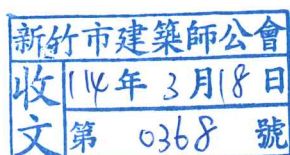 新竹市建築師公會
收文
114年3月18日
第 0368 號